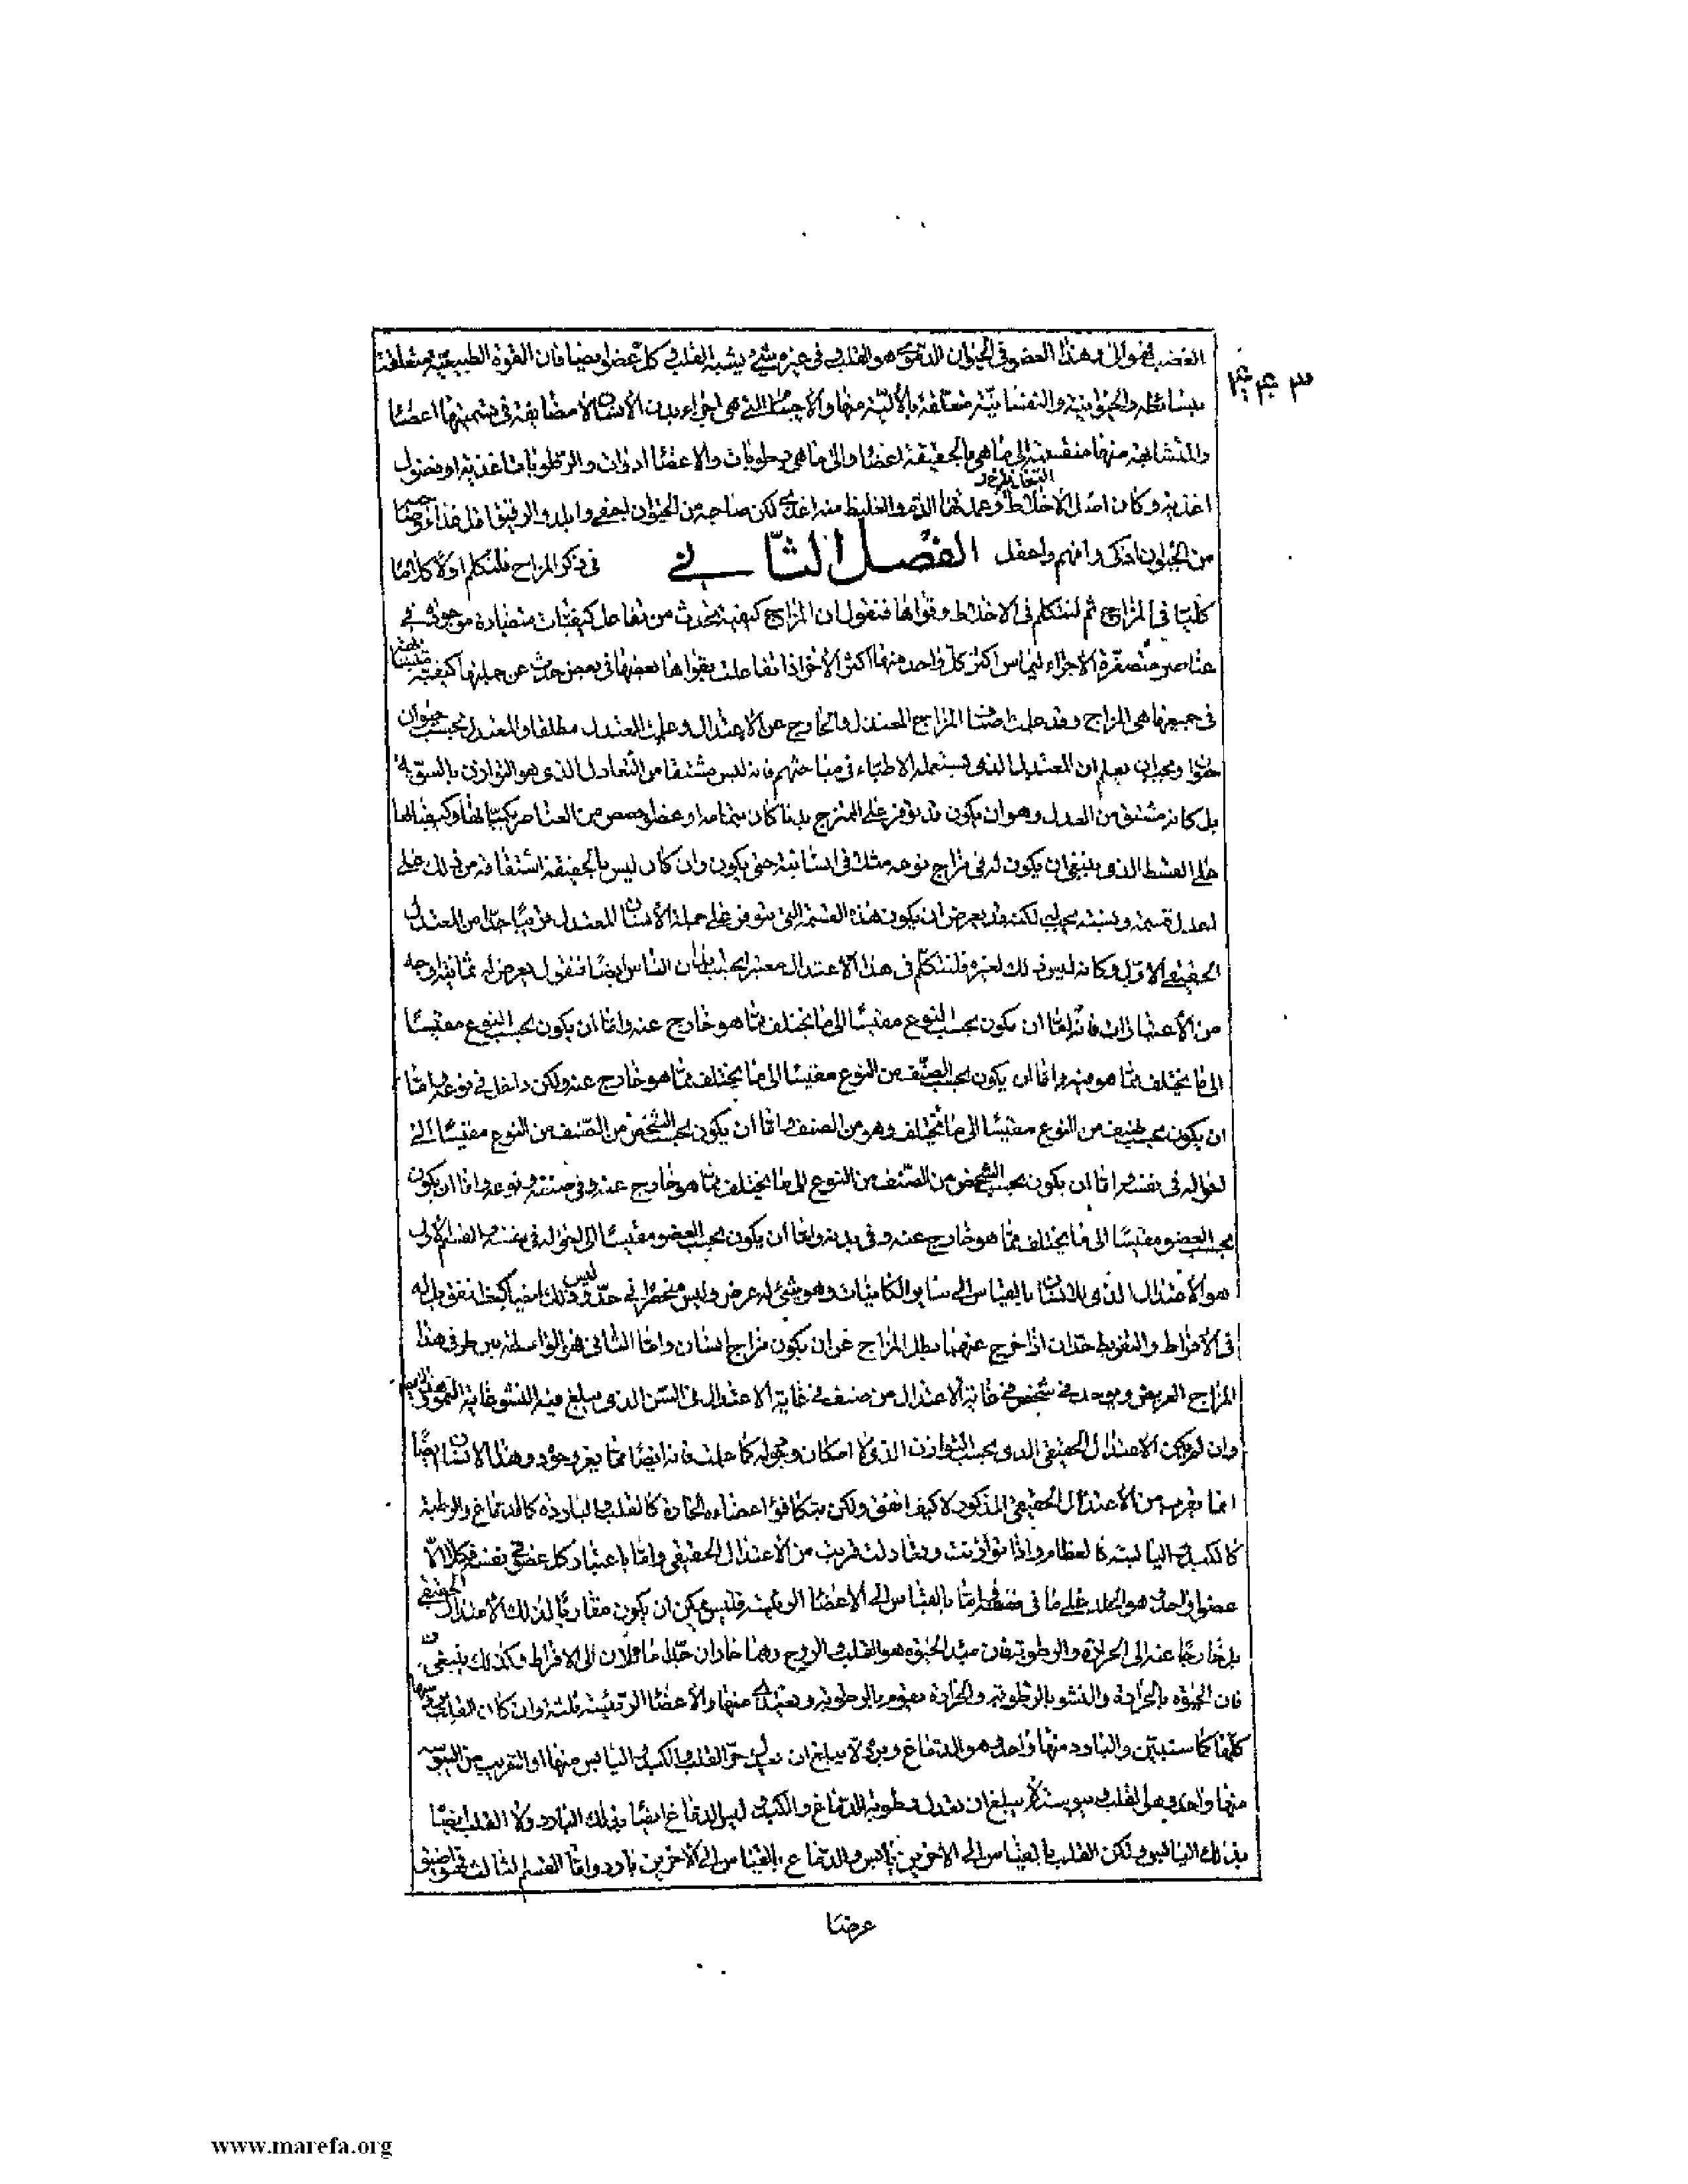 الغضب فهو اول وهذا العضو في الحيوان الدموي هو القلب وفي غيره شيء يشبه القلب وكل عضو ايضا فان القوة الطبيعية متعلقة
ببسائطه والحيوانية والنفسانية متعلقة بالآلية منها والاجسام التي هي اجزاء بدن الانسان الا مضايقة في تسميتها اعضا
والمتشابهة منها منقسمة الى ما هي بالحقيقة اعضا والى ما هي رطوبات والاعضا ادوات والرطوبات اغذية او فضول
اغذية وكان اعدل الاخلاط وعمدتها الدم والغليظ منه اغذى لكن صاحبه من الحيوان اجفى وابلد والرقيق اقل غذاء وصاحبه
من الحيوان اذكى وافهم واعقل الفصل الثاني في ذكر المزاج فلنتكلم اولا كلاما
كليا في المزاج ثم لنتكلم في الاخلاط وقواها فنقول ان المزاج كيفية تحدث من تفاعل كيفيات متضادة موجودة في
عناصر متصغرة الاجزاء ليماس اكثر كل واحد منها اكثر الاخر اذا تفاعلت بقواها بعضها في بعض حدث عن جملتها كيفية متشابهة
في جميعها هي المزاج وقد علمت اصناف المزاج المعتدل والخارج عن الاعتدال وعلمت المعتدل مطلقا والمعتدل بحسب حيوان
حيوان ويجب ان يعلم ان المعتدل الذي يستعمله الاطباء في مباحثهم فانه ليس مشتقا من التعادل الذي هو التوازن بالسوية
بل كانه مشتق من العدل وهو ان يكون قد توفر على الممتزج بدنا كان بتمامه او عضو حصص من العناصر بكمياتها وكيفياتها
على القسط الذي ينبغي ان يكون له في مزاج نوعه مثلا في انسانية حتى يكون وان كان ليس بالحقيقة اشتقاقه من ذلك على
اعدل قسمة ونسبة يجب له لكنه قد يعرض ان يكون هذه القسمة التي يتوفر على جملة الانسان المعتدل قريبا جدا من المعتدل
الحقيقي الاول وكانه ليس ذلك لغيره فلنتكلم في هذا الاعتدال معتبرا بحسب ابدان الناس ايضا فنقول يعرض له ثمانية اوجه
من الاعتبارات فانه اما ان يكون بحسب النوع مقيسا الى ما يختلف مما هو خارج عنه واما ان يكون بحسب النوع مقيسا
الى ما يختلف مما هو فيه واما ان يكون بحسب الصنف من النوع مقيسا الى ما يختلف مما هو خارج عنه ولكن داخل في نوعه واما
ان يكون بحسب صنف من النوع مقيسا الى ما يختلف وهو من الصنف واما ان يكون بحسب الشخص من الصنف من النوع مقيسا الى
احواله في نفسه واما ان يكون بحسب الشخص من الصنف من النوع الى ما يختلف مما هو خارج عنه وفي صنفه ونوعه واما ان يكون
بحسب العضو مقيسا الى ما يختلف مما هو خارج عنه وفي بدنه واما ان يكون بحسب العضو مقيسا الى احواله في نفسه والقسم الاول
هو الاعتدال الذي للانسان بالقياس الى سائر الكائنات وهو شيء له عرض وليس منحصرا في حد وليس ذلك ايضا كيف اتفق بل له
في الافراط والتفريط حدان اذا خرج عنهما بطل المزاج عن ان يكون مزاج انسان واما الثاني فهو الواسطة بين طرفي هذا
المزاج العريض ويوجد في شخص في غاية الاعتدال من صنف في غاية الاعتدال في السن الذي يبلغ فيه النشو غاية النمو وهذا ايضا
وان لم يكن الاعتدال الحقيقي الذي بحسب التوازن الذي لا امكان وجود له كما علمت فانه ايضا مما يعز وجوده وهذا الانسان ايضا
انما يقرب من الاعتدال الحقيقي المذكور لا كيف اتفق ولكن بتكافؤ اعضاءه الحارة كالقلب والباردة كالدماغ والرطبة
كالكبد واليابسة كالعظام واذا توازنت وتعادلت قربت من الاعتدال الحقيقي واما باعتبار كل عضو في نفسه فكلا الا
عضوا واحدا هو الجلد على ما نصفه واما بالقياس الى الاعضا الرئيسة فليس يمكن ان يكون مقاربا لذلك الاعتدال الحقيقي
بل خارجا عنه الى الحرارة والرطوبة فان مبدأ الحيوة هو القلب والروح وهما حاران جدا مائلان الى الافراط وكذلك ينبغي
فان الحيوة بالحرارة والنشو بالرطوبة والحرارة تقوم بالرطوبة وتغتذي منها والاعضا الرئيسة ثلثة وان كان القلب رئيسها
كلها كما سنبين والبارد منها واحد وهو الدماغ وبرده لا يبلغ ان يعدل حر القلب والكبد واليابس منها او القريب من اليبوسة
منها واحد وهو القلب ويبوسته لا يبلغ ان تعدل رطوبة الدماغ والكبد وليس الدماغ ايضا بذلك البارد ولا القلب ايضا
بذلك اليابس ولكن القلب بالقياس الى الاخرين يابس والدماغ بالقياس الى الاخرين بارد واما القسم الثالث فهو اضيق
عرضا
www.marefa.org